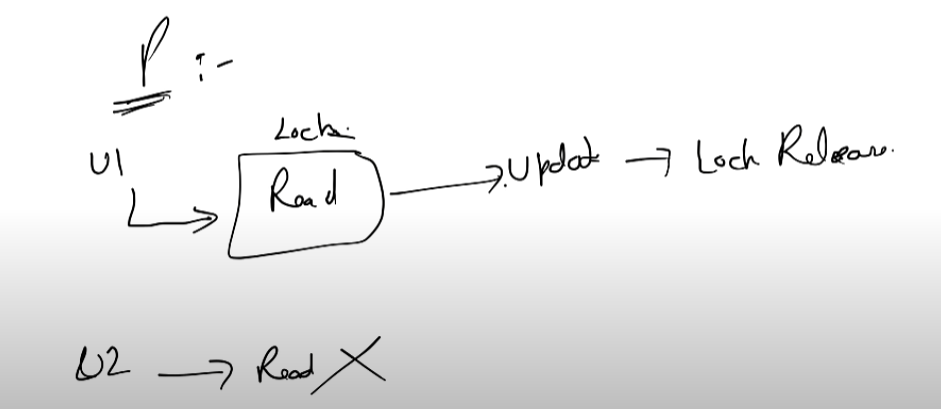 P :-
Lock
U1
Read → Update → Lock Release.
U2 → Read X